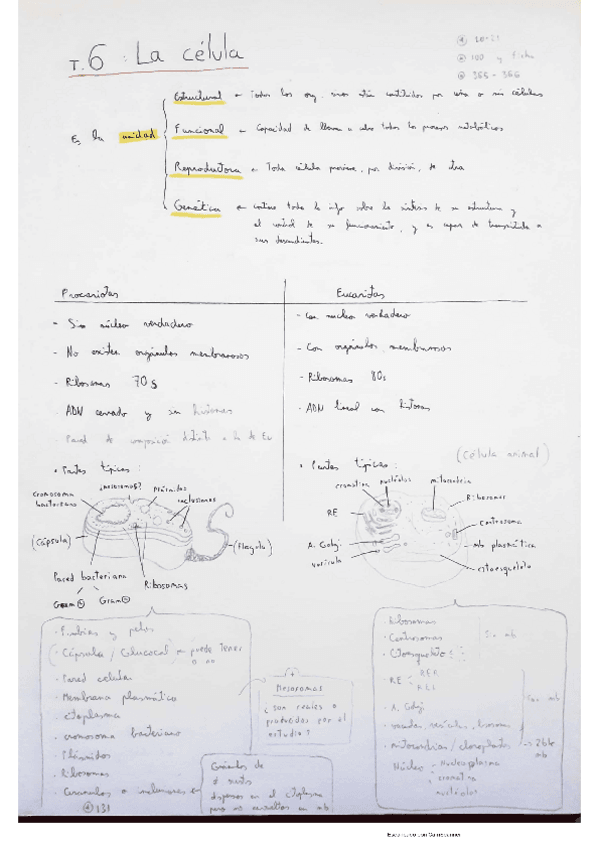 T.6 : La célula
20-21
100 y ficha
365 - 366
Es la unidad
Estructural → Todos los org. vivos están constituidos por una o más células
Funcional → Capacidad de llevar a cabo todos los procesos metabólicos
Reproductora → Toda célula proviene, por división, de otra
Genética → contiene toda la info sobre la síntesis de su estructura y
el control de su funcionamiento, y es capaz de transmitirla a
sus descendientes.
Procariotas
- Sin núcleo verdadero
- No existen orgánulos membranosos
- Ribosomas 70s
- ADN cerrado y sin histonas
- Pared de composición distinta a la de Eu
• Partes típicas:
Eucariotas
- Con núcleo verdadero
- Con orgánulos membranosos
- Ribosomas 80s
- ADN lineal con histonas
• Partes típicas:
(Célula animal)
cromosoma bacteriano
¿mesosomas?
Plásmidos
inclusiones
(Cápsula)
(Flagelo)
Pared bacteriana
Gram ⊕
Gram ⊖
Ribosomas
cromatina
nucléolo
mitocondria
Ribosomas
RE
centrosoma
A. Golgi
mb plasmática
vesícula
citoesqueleto
· Fimbrias y pelos
· Cápsula / Glucocal → puede tener
o no
· Pared celular
· Membrana plasmática
· citoplasma
· cromosoma bacteriano
· Plásmidos
· Ribosomas
131
+
Mesosomas
¿son reales o
producidos por el
estudio?
Gránulos de
≠ susts
dispersos en el citoplasma
pero no envueltos en mb
· Ribosomas
· Centrosomas
· Citoesqueleto
Sin mb
· RE
RER
REL
· A. Golgi
· vacuolas, vesículas, lisosomas
Con mb
· mitocondrias / cloroplastos → Doble
mb
Núcleo
Nucleoplasma
cromatina
nucléolo
Escaneado con CamScanner